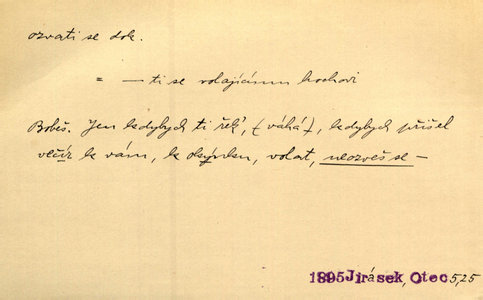 ozvati se dok.
= — ti se volajícímu hochovi
Bobeš. Jen kdybych ti řek', (váhá), kdybych přišel
večír k vám, k okýnku, volat, neozveš se —
1895 Jirásek, Otec 5,25